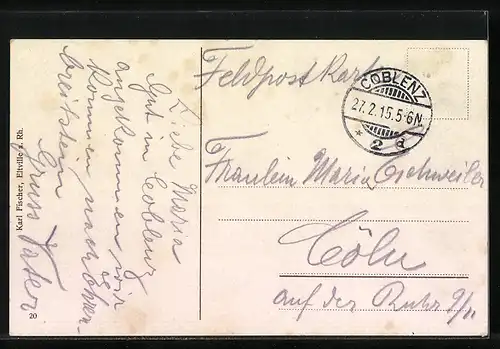 Feldpost Karte
COBLENZ
27.2.15.5-6N.
* 2 d
Fräulein Maria Eschweiler
Cöln
auf der Ruhr 9/11
Liebe Maria
Gut in Coblenz
angekommen wir
kommen nach Ehren-
breitstein
Gruss Vater
Karl Fischer, Eltville a. Rh.
20